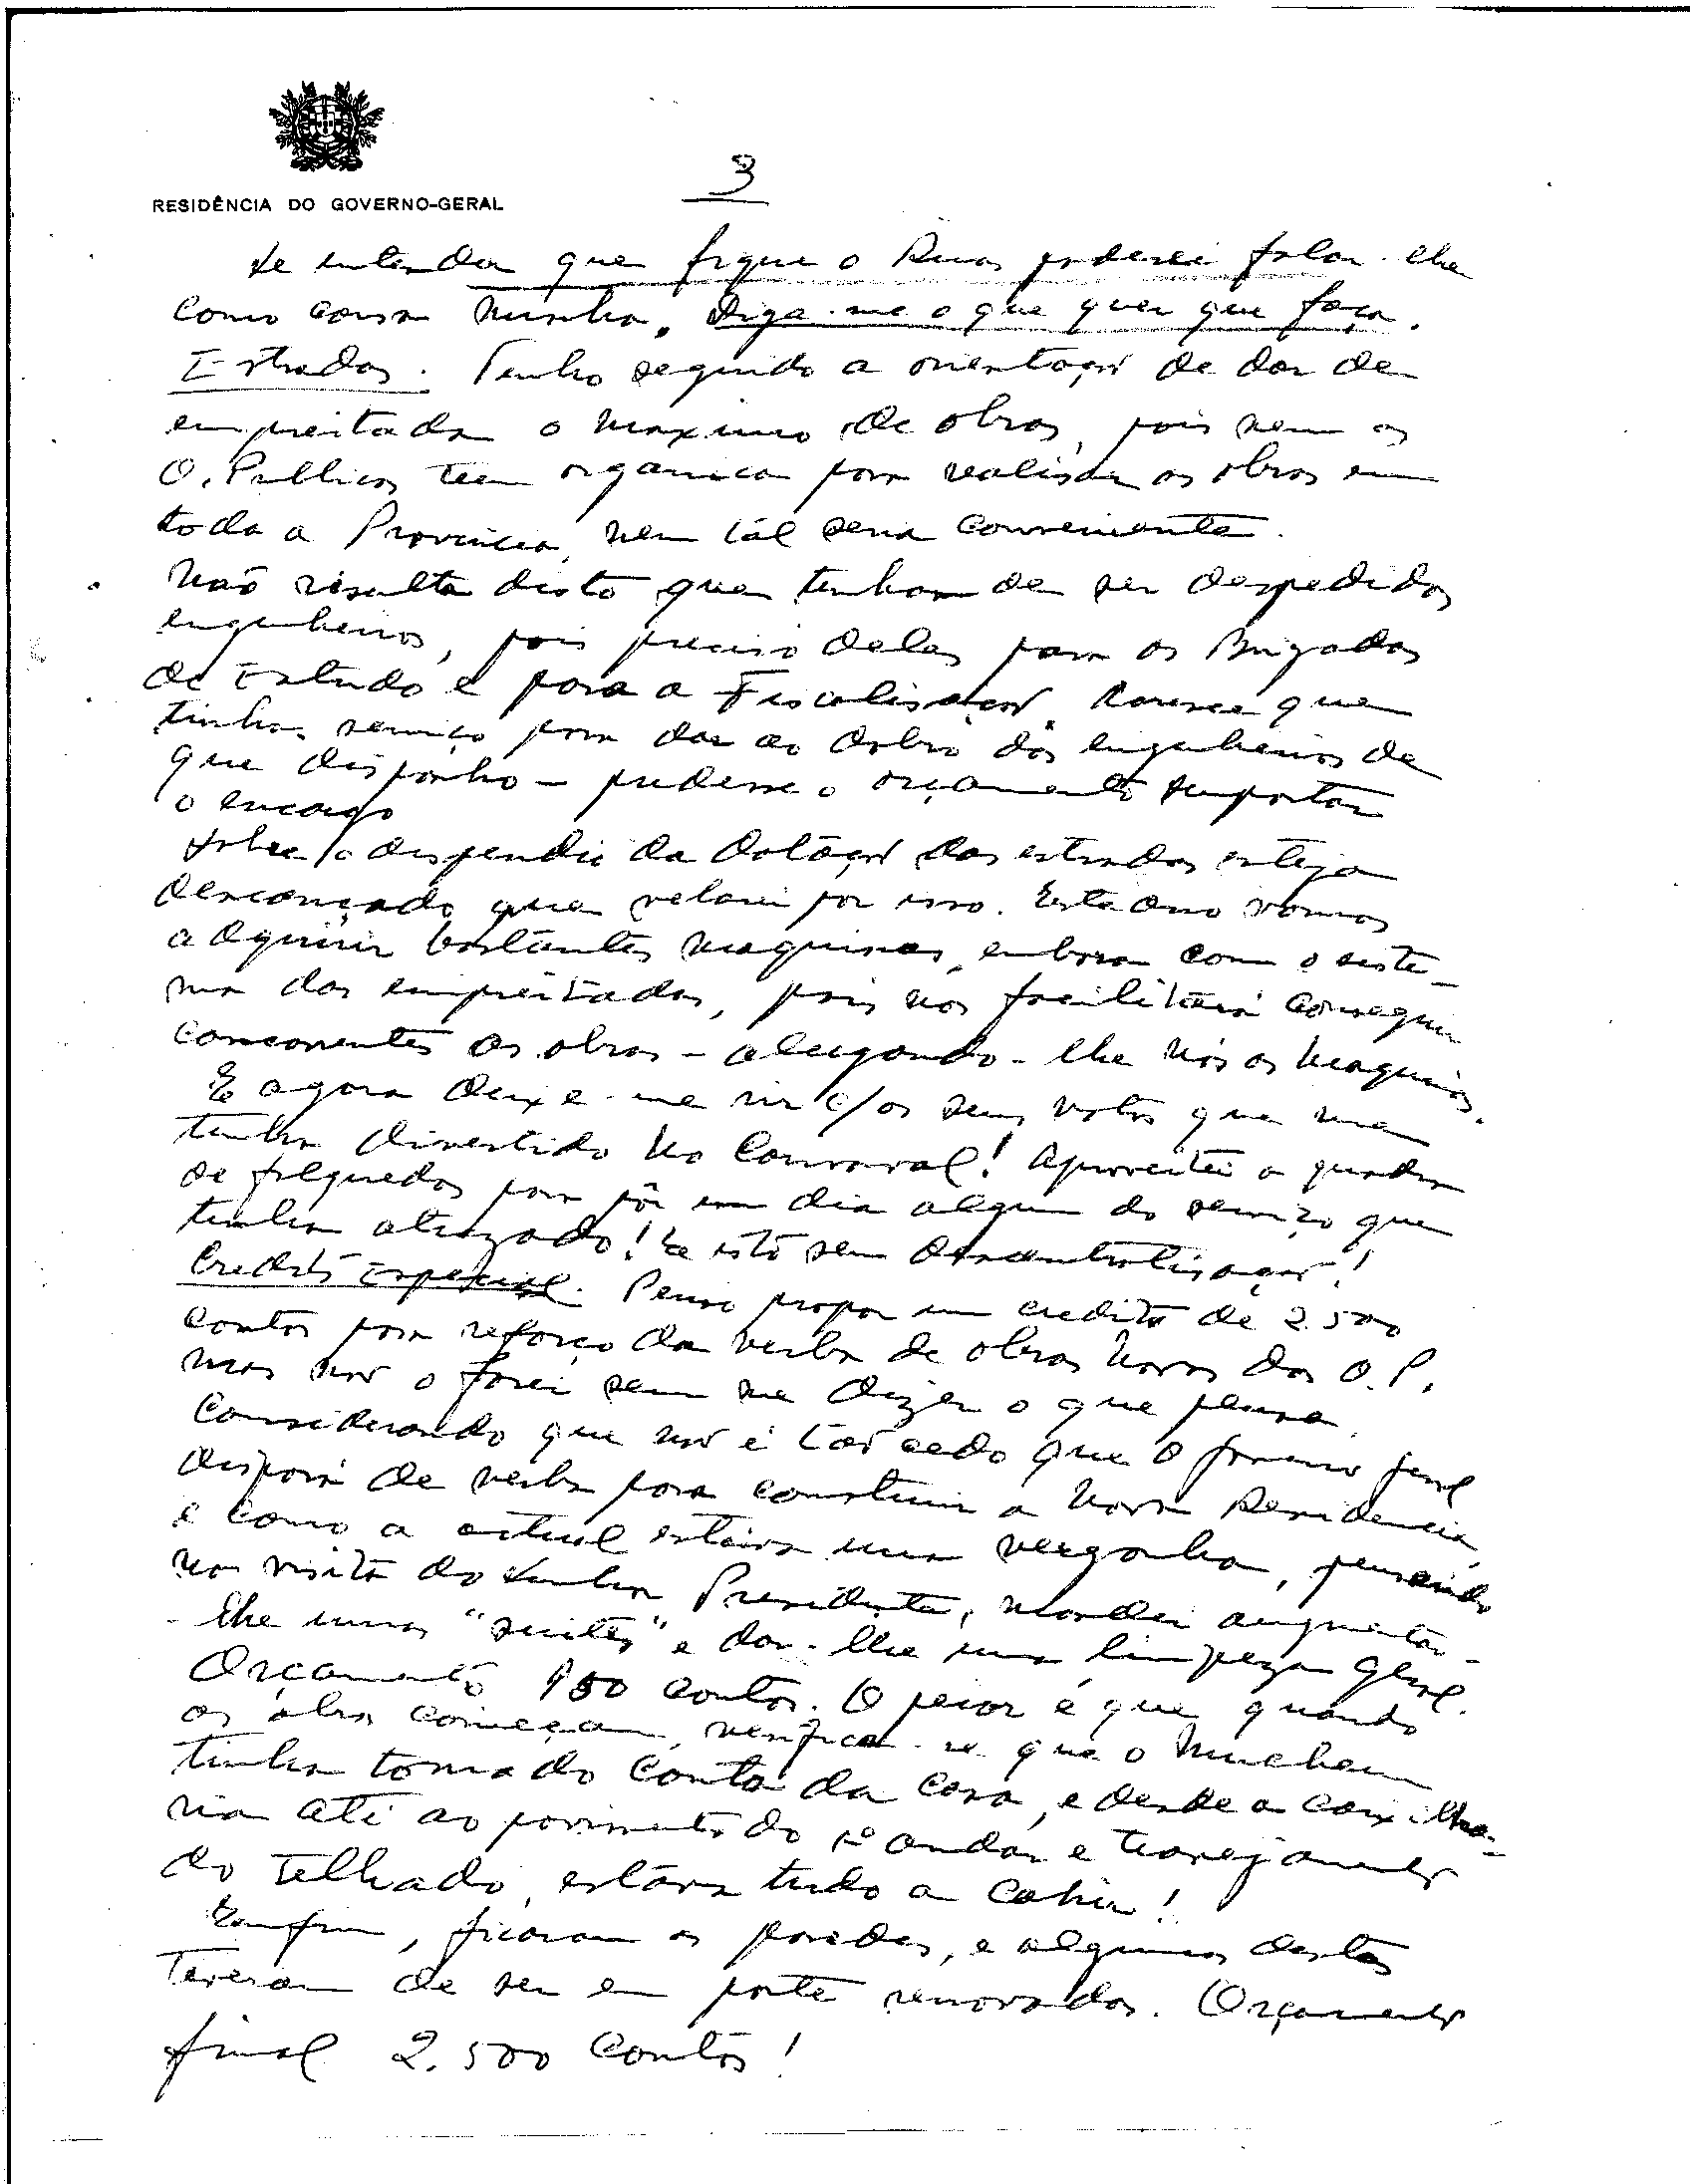 RESIDÊNCIA DO GOVERNO-GERAL
3
Se entender que fique o Ruas poderei falar-lhe
como cousa minha. Diga-me o que quer que faça.
Estradas. Tenho seguido a orientação de dar de
empreitada o maximo de obras, pois nem as
O. Publicas teem organica para realisar as obras em
toda a Provincia, nem tal seria conveniente.
Não resulta disto que tenham de ser despedidos
engenheiros, pois preciso deles para as Brigadas
de Estudo e para a Fiscalisação. que
tinha serviço para dar ao dobro dos engenheiros de
que disponho - pudesse o orçamento suportar
o encargo
Sobre o dispendio da dotação das estradas esteja
descançado que velarei por isso. Este ano vamos
adquirir bastantes maquinas, embora com o siste-
ma das empreitadas, pois nos facilitará conseguir
concorrentes ás obras - alugando-lhe nós as maquinas.
E agora deixe-me rir c/ os seus votos que me
tenha divertido no Carnaval! Aproveitei a quadra
de folguedos para pôr em dia algum do serviço que
tinha atrazado! E isto sem descentralisação!
Credito Especial. Penso propor um credito de 2.500
contos para reforço da verba de obras novas das O.P.
mas não o farei sem me dizer o que pensa.
Considerando que não é tão cedo que o governo geral
disporá de verba para construir a nova Residencia,
e como a actual estava uma vergonha, pensando
na visita do Senhor Presidente, mandei aumentar-
-lhe umas "suites" e dar-lhe uma limpeza geral.
Orçamento 950 contos. O peior é que quando
as obras começam, verifica-se que o muchem
tinha tomado conta da casa, e desde a caixilha-
ria até ao pavimento do 1º andar e travejamento
do telhado, estava tudo a cahir!
Emfim, ficaram as paredes, e algumas destas
tiveram de ser em parte renovadas. Orçamento
final 2.500 contos!